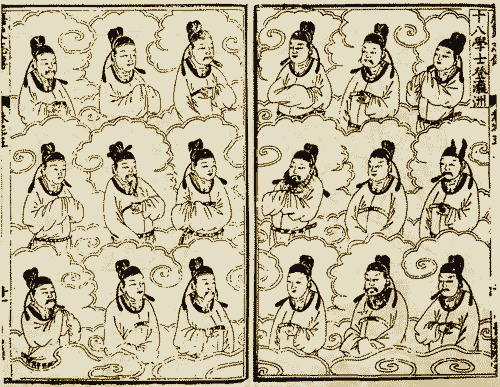 十八学士登瀛洲